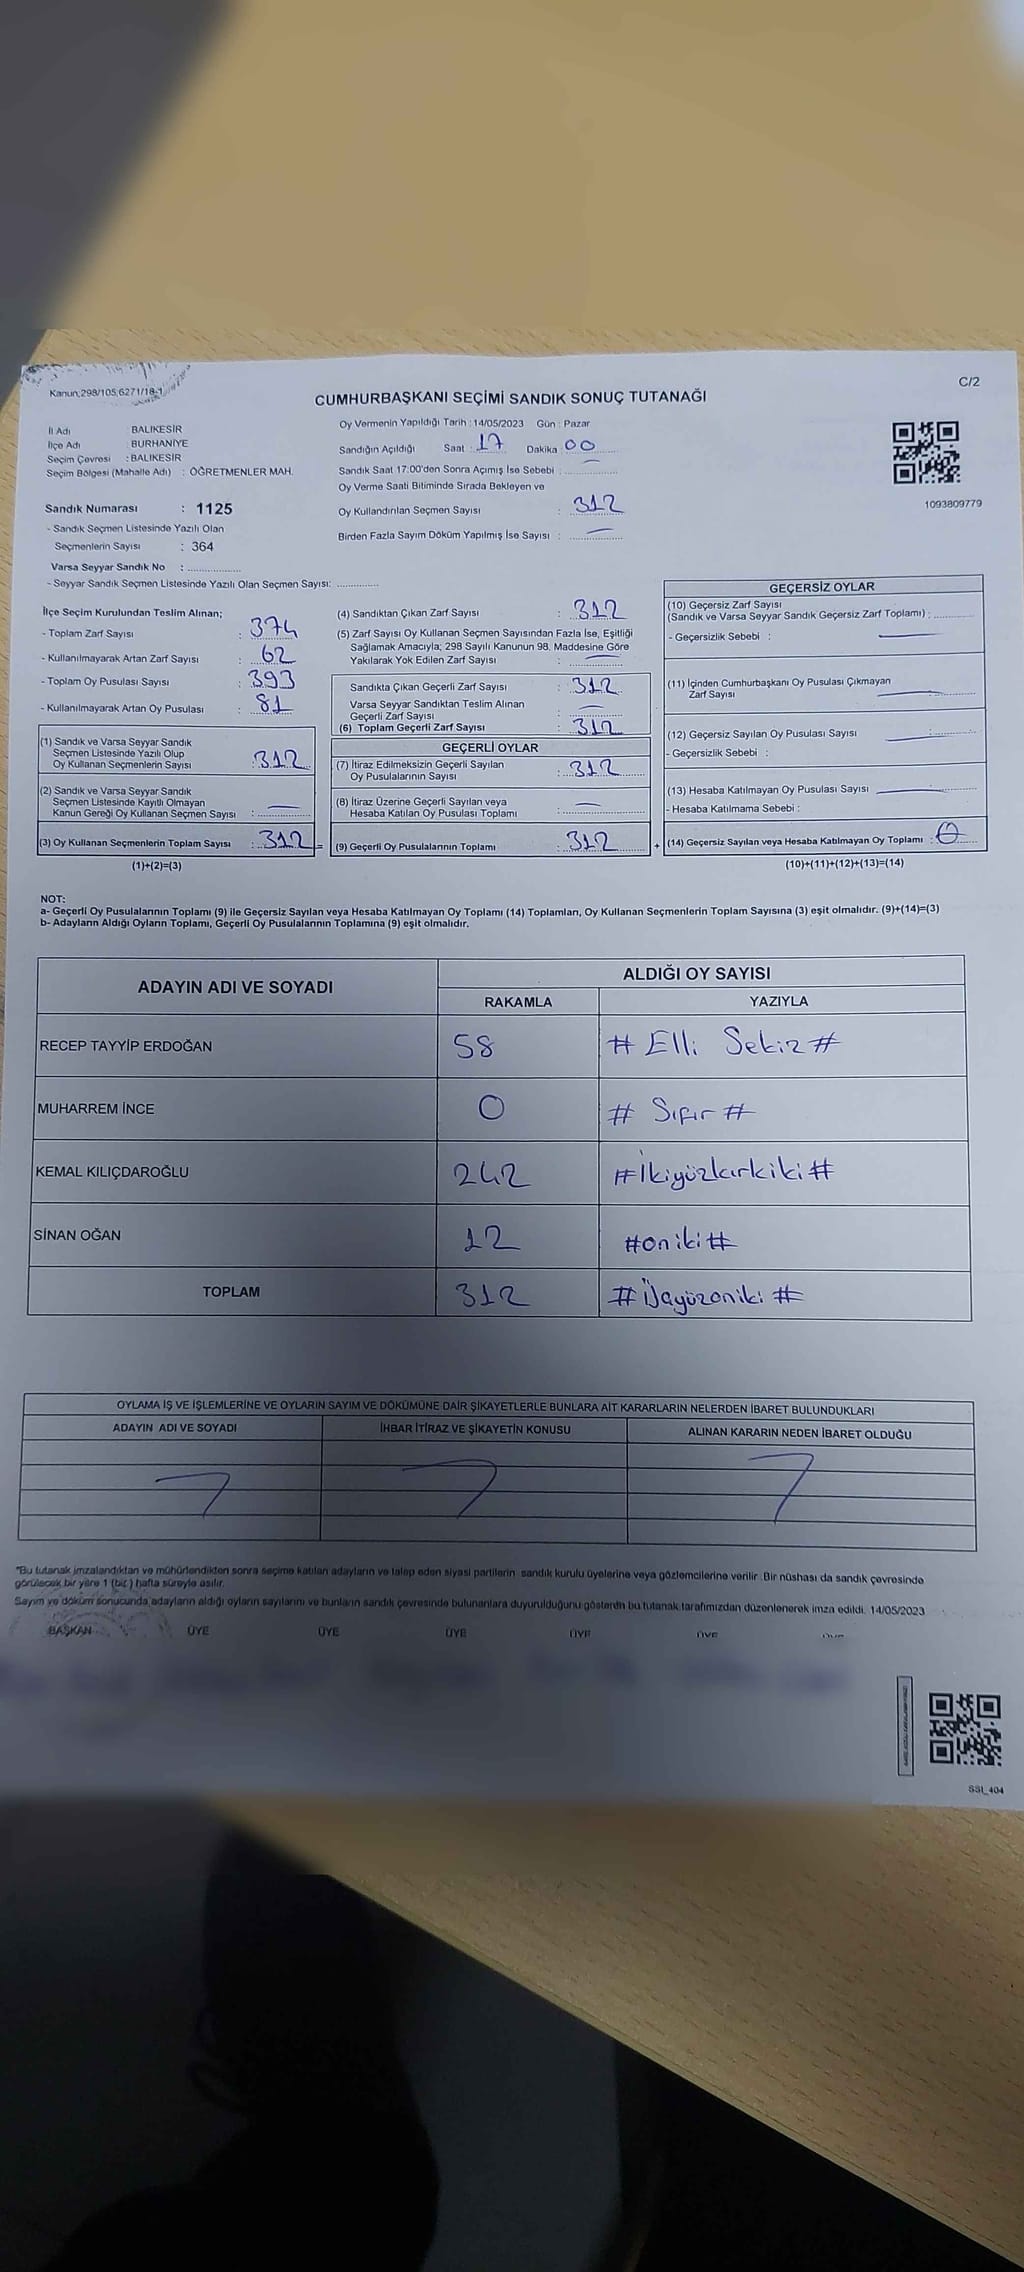 Kanun;298/105;6271/18-1
C/2
CUMHURBAŞKANI SEÇİMİ SANDIK SONUÇ TUTANAĞI
İl Adı BALIKESİR
İlçe Adı BURHANİYE
Seçim Çevresi : BALIKESİR
Seçim Bölgesi (Mahalle Adı) : ÖĞRETMENLER MAH.
Sandık Numarası : 1125
- Sandık Seçmen Listesinde Yazılı Olan
Seçmenlerin Sayısı : 364
Varsa Seyyar Sandık No :
- Seyyar Sandık Seçmen Listesinde Yazılı Olan Seçmen Sayısı:
Oy Vermenin Yapıldığı Tarih : 14/05/2023 Gün : Pazar
Sandığın Açıldığı Saat : 17 Dakika 00
Sandık Saat 17:00'den Sonra Açımış İse Sebebi :
Oy Verme Saati Bitiminde Sırada Bekleyen ve
Oy Kullandırılan Seçmen Sayısı : 312
Birden Fazla Sayım Döküm Yapılmış İse Sayısı :
1093809779
İlçe Seçim Kurulundan Teslim Alınan;
- Toplam Zarf Sayısı : 374
- Kullanılmayarak Artan Zarf Sayısı : 62
- Toplam Oy Pusulası Sayısı : 393
- Kullanılmayarak Artan Oy Pusulası : 81
(1) Sandık ve Varsa Seyyar Sandık
Seçmen Listesinde Yazılı Olup
Oy Kullanan Seçmenlerin Sayısı : 312
(2) Sandık ve Varsa Seyyar Sandık
Seçmen Listesinde Kayıtlı Olmayan
Kanun Gereği Oy Kullanan Seçmen Sayısı :
(3) Oy Kullanan Seçmenlerin Toplam Sayısı : 312 =
(1)+(2)=(3)
(4) Sandıktan Çıkan Zarf Sayısı : 312
(5) Zarf Sayısı Oy Kullanan Seçmen Sayısından Fazla İse, Eşitliği
Sağlamak Amacıyla; 298 Sayılı Kanunun 98. Maddesine Göre
Yakılarak Yok Edilen Zarf Sayısı :
Sandıkta Çıkan Geçerli Zarf Sayısı : 312
Varsa Seyyar Sandıktan Teslim Alınan
Geçerli Zarf Sayısı :
(6) Toplam Geçerli Zarf Sayısı : 312
GEÇERLİ OYLAR
(7) İtiraz Edilmeksizin Geçerli Sayılan
Oy Pusulalarının Sayısı : 312
(8) İtiraz Üzerine Geçerli Sayılan veya
Hesaba Katılan Oy Pusulası Toplamı :
(9) Geçerli Oy Pusulalarının Toplamı : 312 +
GEÇERSİZ OYLAR
(10) Geçersiz Zarf Sayısı
(Sandık ve Varsa Seyyar Sandık Geçersiz Zarf Toplamı) :
- Geçersizlik Sebebi :
(11) İçinden Cumhurbaşkanı Oy Pusulası Çıkmayan
Zarf Sayısı
(12) Geçersiz Sayılan Oy Pusulası Sayısı
- Geçersizlik Sebebi :
(13) Hesaba Katılmayan Oy Pusulası Sayısı
- Hesaba Katılmama Sebebi :
(14) Geçersiz Sayılan veya Hesaba Katılmayan Oy Toplamı : 0
(10)+(11)+(12)+(13)=(14)
NOT:
a- Geçerli Oy Pusulalarının Toplamı (9) ile Geçersiz Sayılan veya Hesaba Katılmayan Oy Toplamı (14) Toplamları, Oy Kullanan Seçmenlerin Toplam Sayısına (3) eşit olmalıdır. (9)+(14)=(3)
b- Adayların Aldığı Oyların Toplamı, Geçerli Oy Pusulalarının Toplamına (9) eşit olmalıdır.
ADAYIN ADI VE SOYADI
ALDIĞI OY SAYISI
RAKAMLA YAZIYLA
RECEP TAYYİP ERDOĞAN 58 # Elli Sekiz #
MUHARREM İNCE 0 # Sıfır #
KEMAL KILIÇDAROĞLU 242 #İkiyüzkırkiki #
SİNAN OĞAN 12 #oniki#
TOPLAM 312 # Üçyüzoniki #
OYLAMA İŞ VE İŞLEMLERİNE VE OYLARIN SAYIM VE DÖKÜMÜNE DAİR ŞİKAYETLERLE BUNLARA AİT KARARLARIN NELERDEN İBARET BULUNDUKLARI
ADAYIN ADI VE SOYADI İHBAR İTİRAZ VE ŞİKAYETİN KONUSU ALINAN KARARIN NEDEN İBARET OLDUĞU
"Bu tutanak imzalandıktan ve mühürlendikten sonra seçime katılan adayların ve talep eden siyasi partilerin sandık kurulu üyelerine veya gözlemcilerine verilir. Bir nüshası da sandık çevresinde
görülecek bir yere 1 (bir) hafta süreyle asılır.
Sayım ve döküm sonucunda adayların aldığı oyların sayılarını ve bunların sandık çevresinde bulunanlara duyurulduğunu gösteren bu tutanak tarafımızdan düzenlenerek imza edildi. 14/05/2023
BAŞKAN ÜYE ÜYE ÜYE ÜYE ÜYE
SSI_404